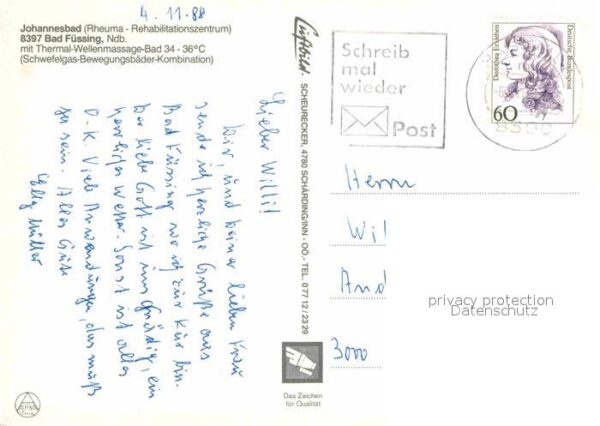 4. 11. 88
Johannesbad (Rheuma - Rehabilitationszentrum)
8397 Bad Füssing, Ndb.
mit Thermal-Wellenmassage-Bad 34 - 36°C
(Schwefelgas-Bewegungsbäder-Kombination)
Lieber Willi!
Dir, und deiner lieben Frau
sende ich herzliche Grüße aus
Bad Füssing wo ich zur Kur bin.
Der liebe Gott ist uns gnädig, ein
herrliches Wetter. Sonst ist alles
O.K. Viele Anwendungen, das muß
so sein. Alles Gute
Elly Müller
Luftbild SCHEURECKER, 4780 SCHÄRDING/INN - OÖ. - TEL. 077 12/23 29
Das Zeichen
für Qualität
Schreib
mal
wieder
Post
Deutsche Bundespost
Dorothea Erxleben
60
Herrn
Wil
And
3000
privacy protection
Datenschutz